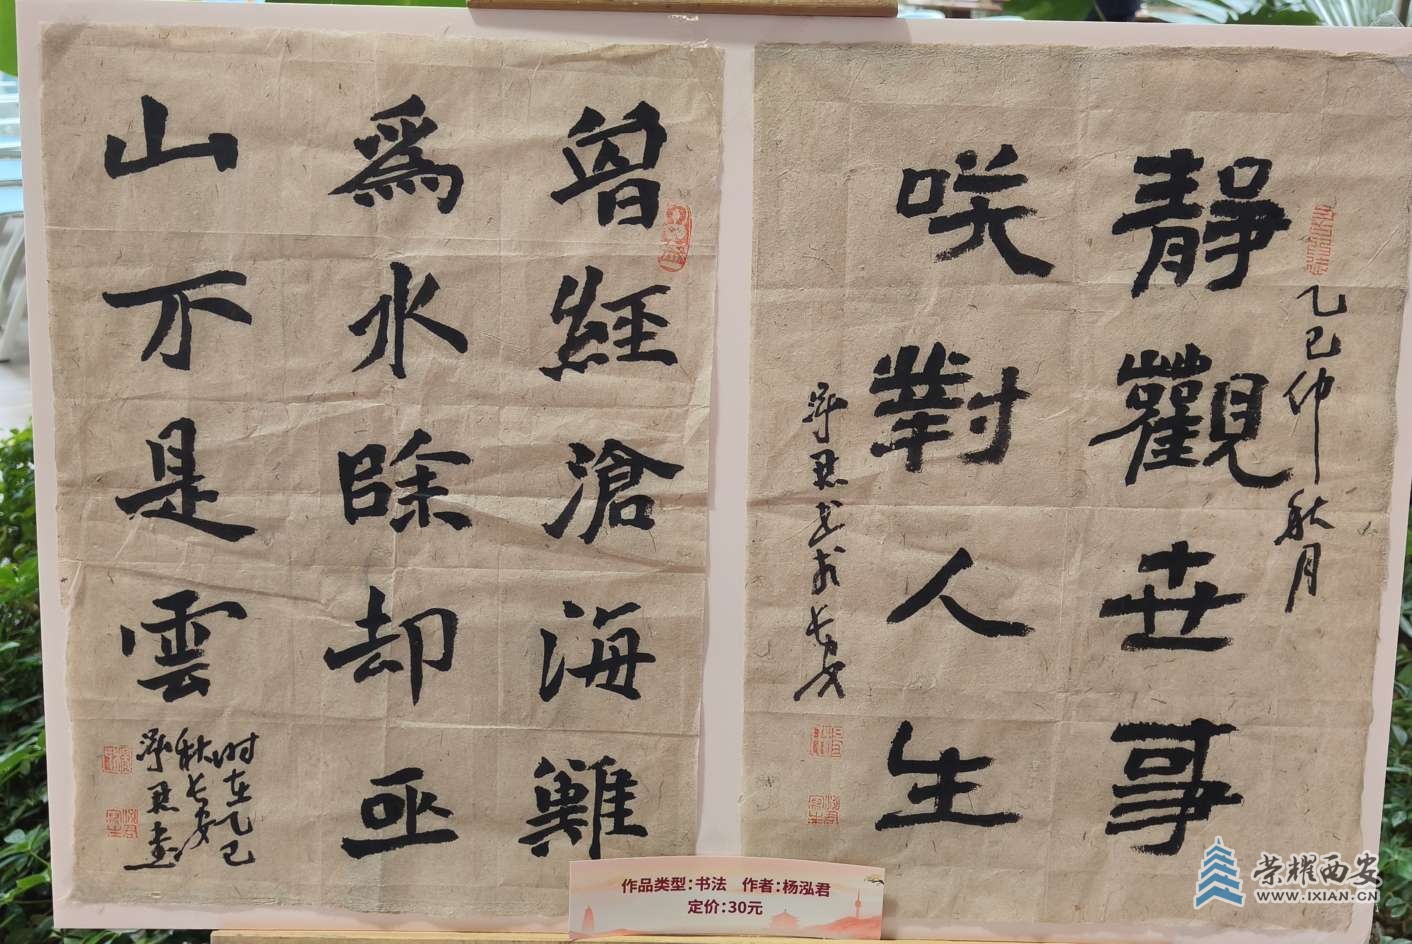 乙巳仲秋月
靜觀世事
咲對人生
泓君书於长安
曾經滄海難
爲水除却巫
山不是雲
时在乙巳
秋长安
泓君書
作品类型:书法 作者:杨泓君
定价:30元
荣耀西安
WWW.IXIAN.CN